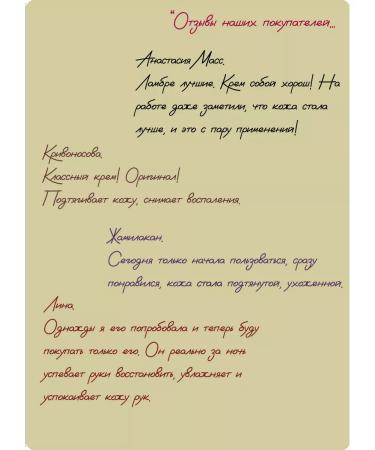 "Отзывы наших покупателей...
Анастасия Масс.
Ламбре лучшие. Крем собой хорош! На
работе даже заметили, что кожа стала
лучше, и это с пару применений!
Кривоносова.
Классный крем! Оригинал!
Подтягивает кожу, снимает воспаления.
Жамилакан.
Сегодня только начала пользоваться, сразу
понравился, кожа стала подтянутой, ухоженной.
Лина.
Однажды я его попробовала и теперь буду
покупать только его. Он реально за ночь
успевает руки восстановить, увлажняет и
успокаивает кожу рук.